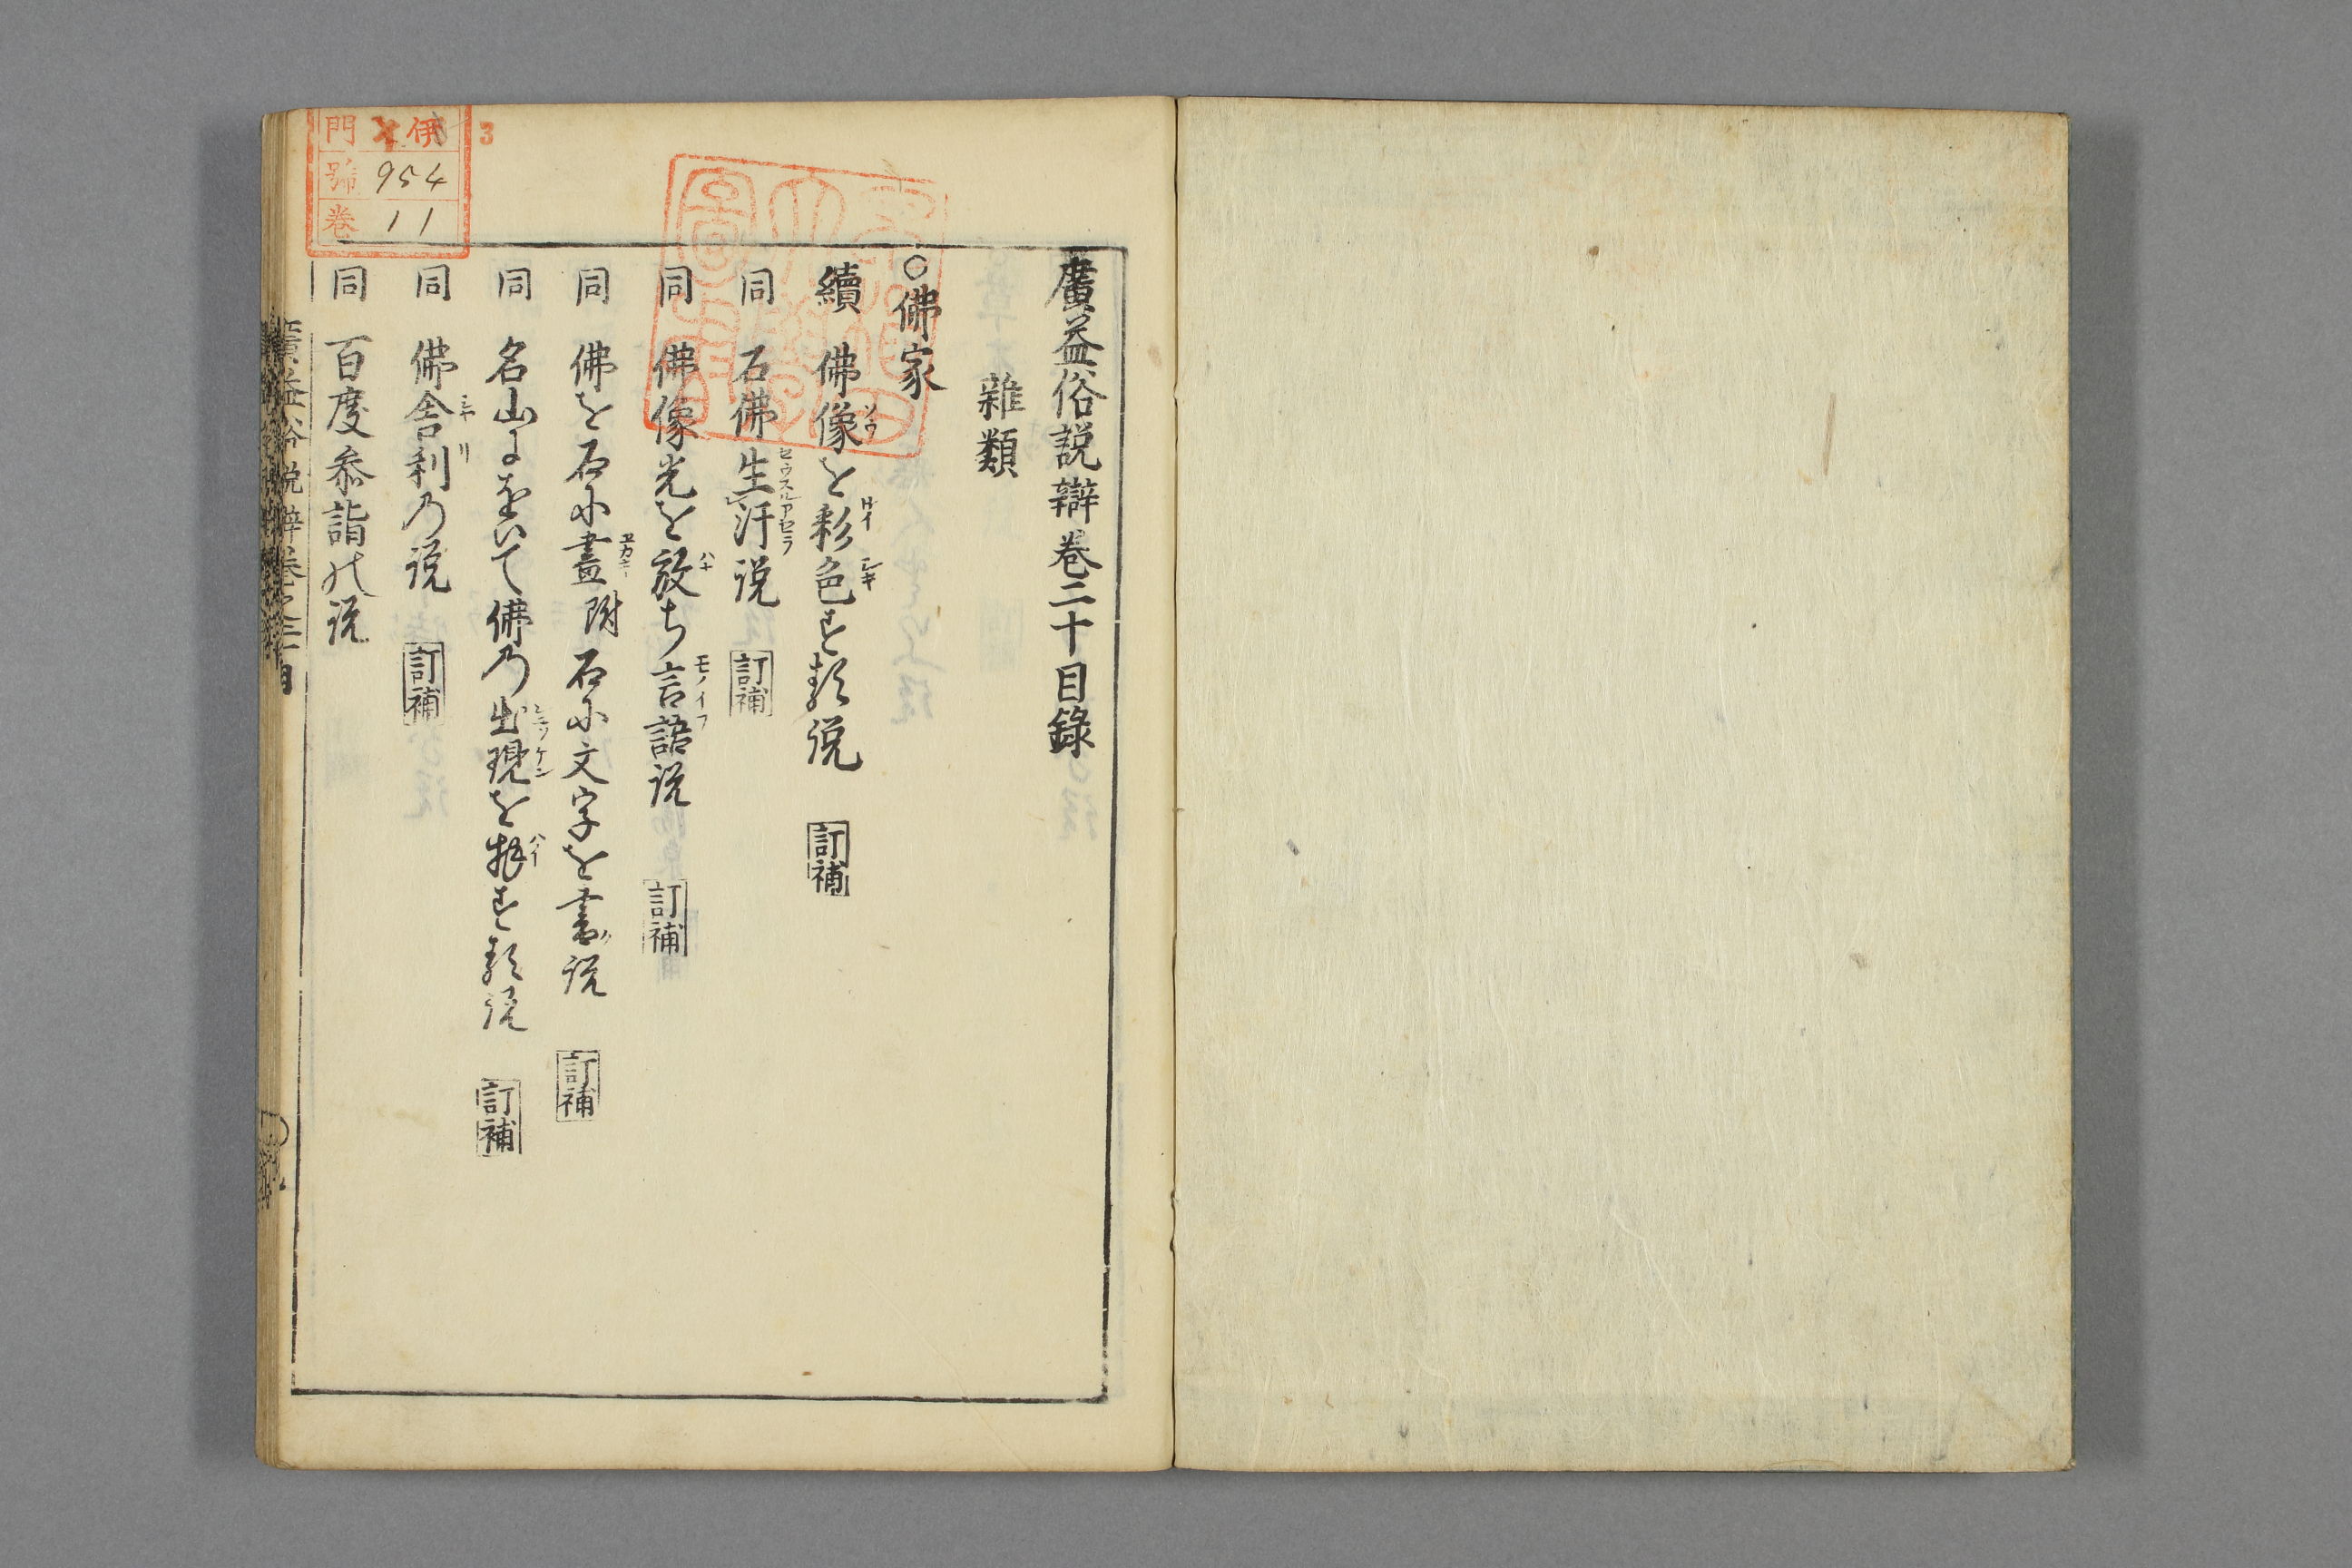 廣益俗説辯巻二十目錄
雜類
○佛家
續 佛像を彩色する説 訂補
同 石佛生汗説 訂補
同 佛像光を放ち言語説 訂補
同 佛を石に畫附石に文字を書説 訂補
同 名山にをいて佛乃出現を拝する説 訂補
同 佛舎利乃説 訂補
同 百度叅詣の説
門 伊
號 954
巻 11
3